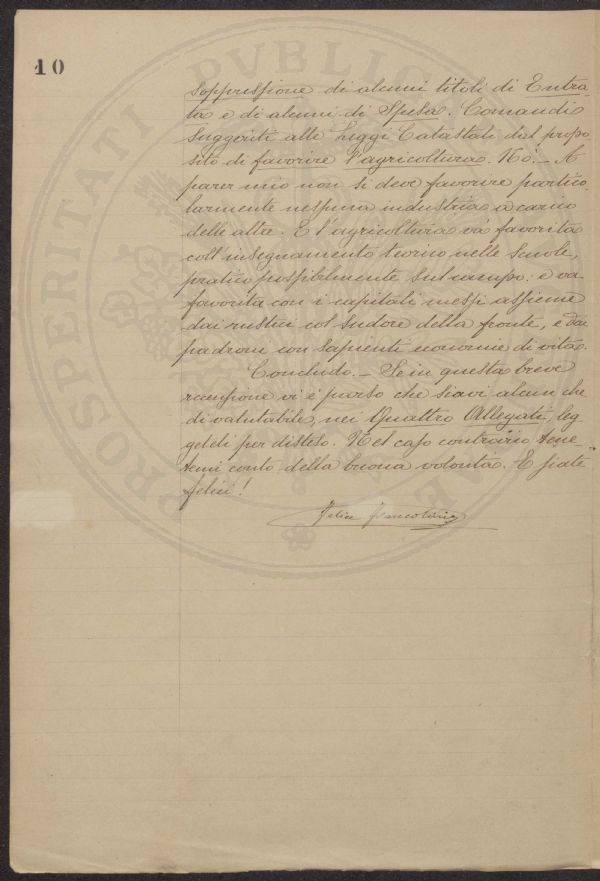 10
PROSPERITATI PVBLICAE
Soppressione di alcuni titoli di Entra-
ta e di alcuni di Spesa. Comandi
suggeriti alle Leggi Catastali dal propo-
sito di favorire l'agricoltura. No! - A
parer mio non si deve favorire partico-
larmente nessuna industria a carico
delle altre. E l'agricoltura va favorita
coll'insegnamento teorico, nelle Scuole,
pratico possibilmente sul campo: e va
favorita con i capitali messi assieme
dai rustici col sudore della fronte, e dai
padroni con sapienti economie di vita.
Concludo. - Se in questa breve
recensione vi è parso che siavi alcun che
di valutabile, nei Quattro Allegati, leg-
geteli per disteso. Nel caso contrario tene-
temi conto della buona volontà. E siate
felici!
Felice Francolini